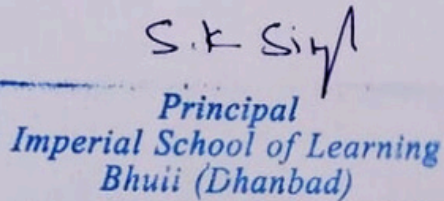 S.K Singh
Principal
Imperial School of Learning
Bhuii (Dhanbad)